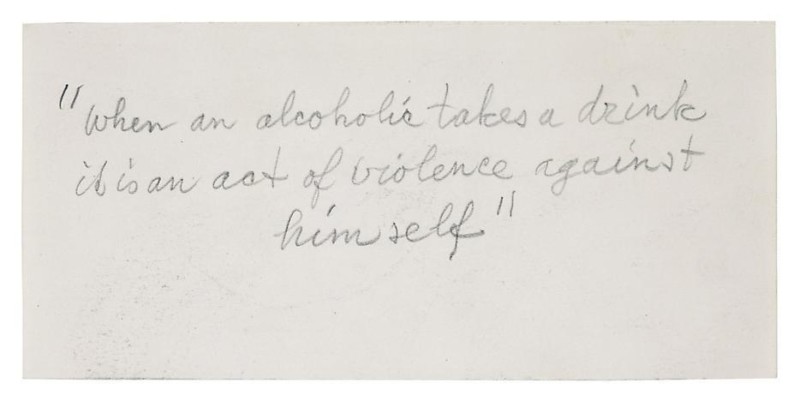 "When an alcoholic takes a drink
it is an act of violence against
himself"